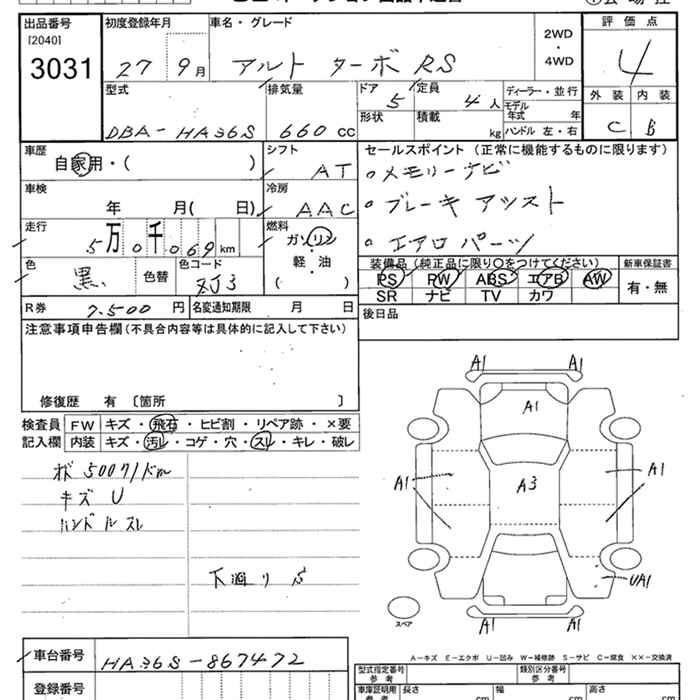 出品番号 [2040] 3031
初度登録年月 27 9月
車名・グレード アルト ターボRS
2WD・4WD
評価点 4
外装 C 内装 B
型式 DBA-HA36S
排気量 660cc
ドア 5 定員 4人
形状 積載 kg
ディーラー・並行
モデル年式 年
ハンドル 左・右
車歴 自家用・( )
シフト AT
車検 年 月( 日)
冷房 AAC
走行 5万0千069km
燃料 ガソリン・軽・油 ( )
色 黒 色替 色コード ZJ3
セールスポイント(正常に機能するものに限ります)
○メモリーナビ
○ブレーキ アシスト
○エアロ パーツ
装備品(純正品に限り○をつけてください)
PS PW ABS エアB AW
SR ナビ TV カワ
新車保証書 有・無
R券 7.500円
名変通知期限 月 日
後日品
注意事項申告欄(不具合内容等は具体的に記入して下さい)
修復歴 有〔箇所 〕
検査員記入欄
FW キズ・飛石・ヒビ割・リペア跡・×要
内装 キズ・汚レ・コゲ・穴・スレ・キレ・破レ
キズ U
ハンドルスレ
下廻り S
A1 A1
A1
A1 A3 A1
UA1
A1 A1
スペア
A-キズ E-エクボ U-凹み W-補修跡 S-サビ C-腐食 ××-交換済
車台番号 HA36S-867472
登録番号
型式指定番号 参考
類別区分番号 参考
車庫証明用 参考 長さ cm 幅 cm 高さ cm